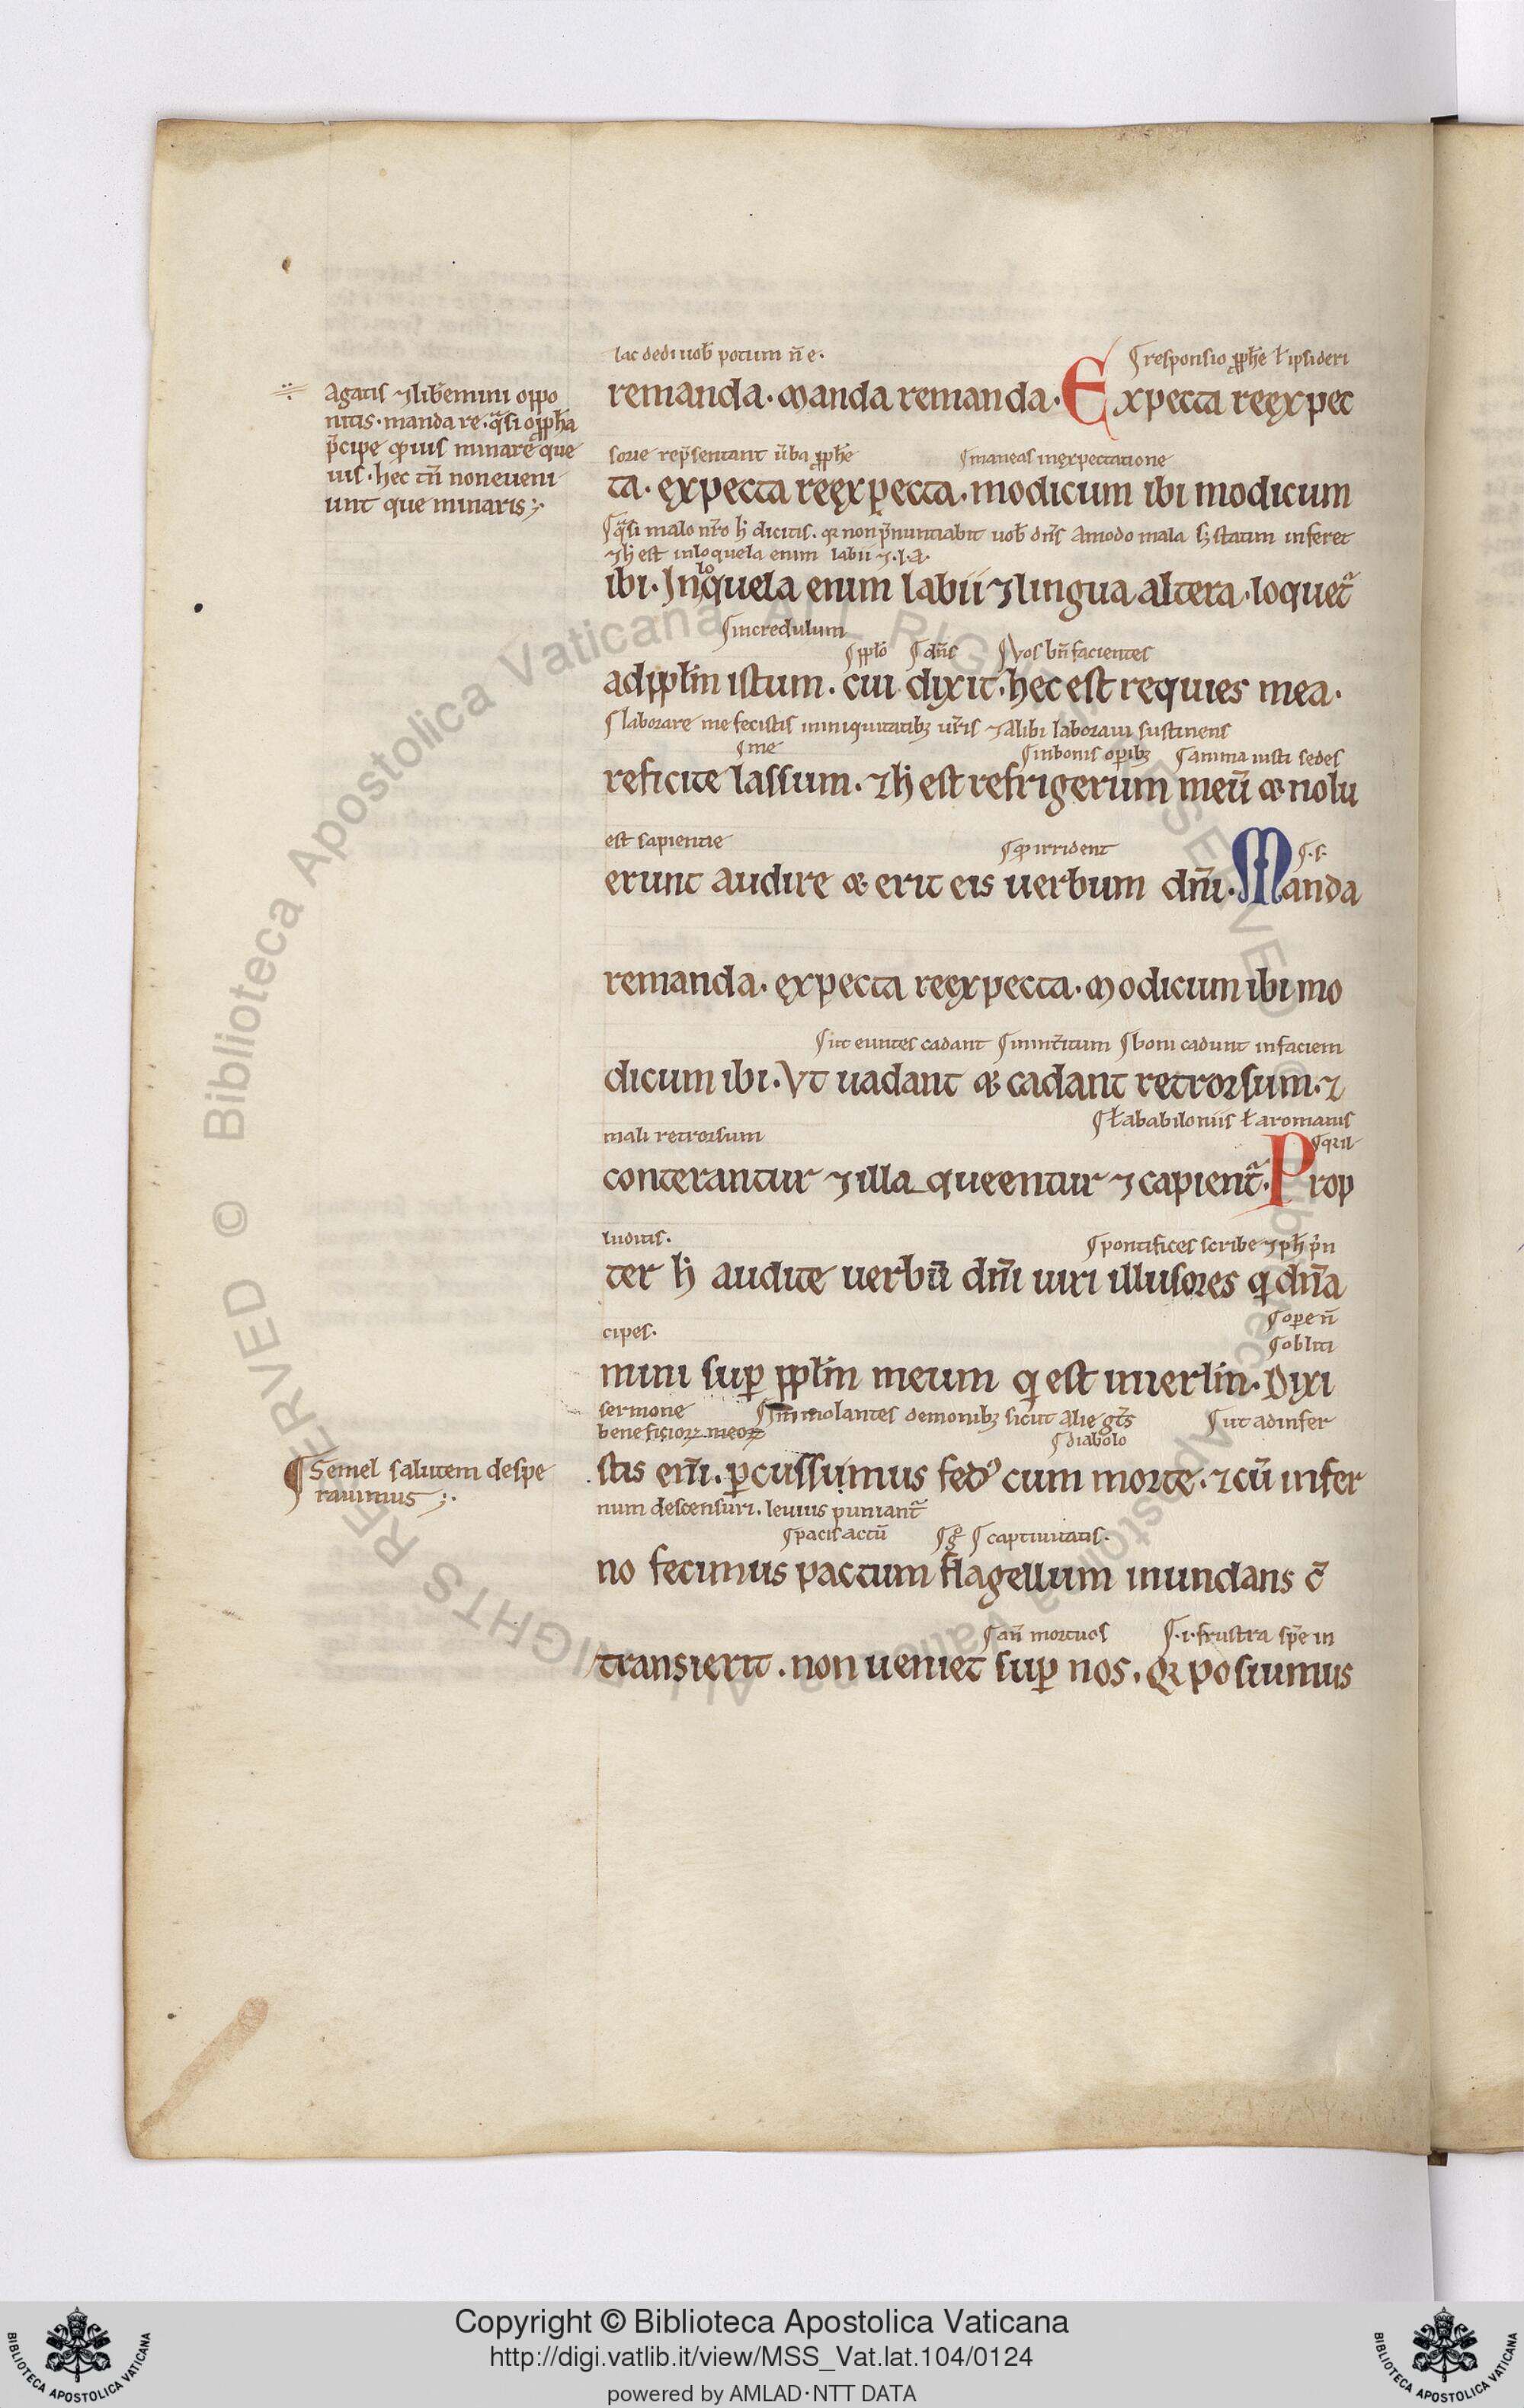 lac dedi uob̄ potum n̄ e·
¶ responsio ꝓph̄e ł ipsi deri
remanda· Manda remanda· Expecta reexpec
sorie rep̄sentant ūba ꝓph̄e
¶ maneas in expectatione
ta· expecta reexpecta· modicum ibi modicum
¶ q̄si malo nr̄o h̄ dicitis. qꝛ non p̄nuntiabit uob̄ dn̄s amodo mala sꝫ statim inferet
⁊ h̄ est in loquela enim labii ⁊·l·a·
ibi· In loquela enim labii ⁊ lingua altera· loquet᷑
¶ incredulum
¶ pp̄lo ¶ dn̄s ¶ Vos bn̄ facientes
ad ppl̄m istum· cui dixit· hec est requies mea·
¶ laborare me fecistis in iniquitatibꝫ ur̄is ⁊ alibi laboraui sustinens
¶ me ¶ in bonis oꝑibꝫ ¶ anima iusti sedes
reficite lassum· ⁊ h̄ est refrigerium meū & nolu
est sapientie
¶ ꝙ irrident ¶·s·
erunt audire & erit eis uerbum dn̄i· Manda
remanda· expecta reexpecta· Modicum ibi mo
¶ ut euntes cadant ¶ in int̄itum ¶ boni cadunt in faciem
dicum ibi· Vt uadant & cadant retrorsum· ⁊
¶ ł a babiloniis ł a romanis
mali retrorsum ¶ qꝛ il
conterantur ⁊ illaqueentur ⁊ capient᷑· Prop
luditis·
¶ pontifices scribe ⁊ ph̄ p̄n
ter h̄ audite uerbū dn̄i uiri illusores q̇ dn̄a
cipes·
¶ oꝑe n̄
¶ obliti
mini suꝑ ppl̄m meum q̇ est in ierl̄m· Dixi
sermone ¶ immolantes demonibꝫ sicut alie gt̄s ¶ ut ad infer
beneficioꝝ meoꝝ ¶ diabolo
stis eni̅· ꝑcussimus fedꝰ cum morte· ⁊ cū infer
num descensuri· leuius puniant᷑
¶ pacis actū ¶ captiuitatis·
no fecimus pactum flagellum inundans c̄
¶ an̄ mortuos ¶·i· frustra sp̄e in
transierit· non ueniet suꝑ nos· Qꝛ posuimus
agatis ⁊ lib̄emini oppo
nitis· manda re· q̄si o ꝓph̄a
p̄cipe ꝙ uis minare que
uis· hec tn̄ non eueni
unt que minaris;
¶ Semel salutem despe
rauimus;·
Copyright © Biblioteca Apostolica Vaticana
http://digi.vatlib.it/view/MSS_Vat.lat.104/0124
powered by AMLAD·NTT DATA
BIBLIOTECA APOSTOLICA VATICANA
BIBLIOTECA APOSTOLICA VATICANA
© Biblioteca Apostolica Vaticana ALL RIGHTS RESERVED © Biblioteca Apostolica Vaticana ALL RIGHTS RESERVED